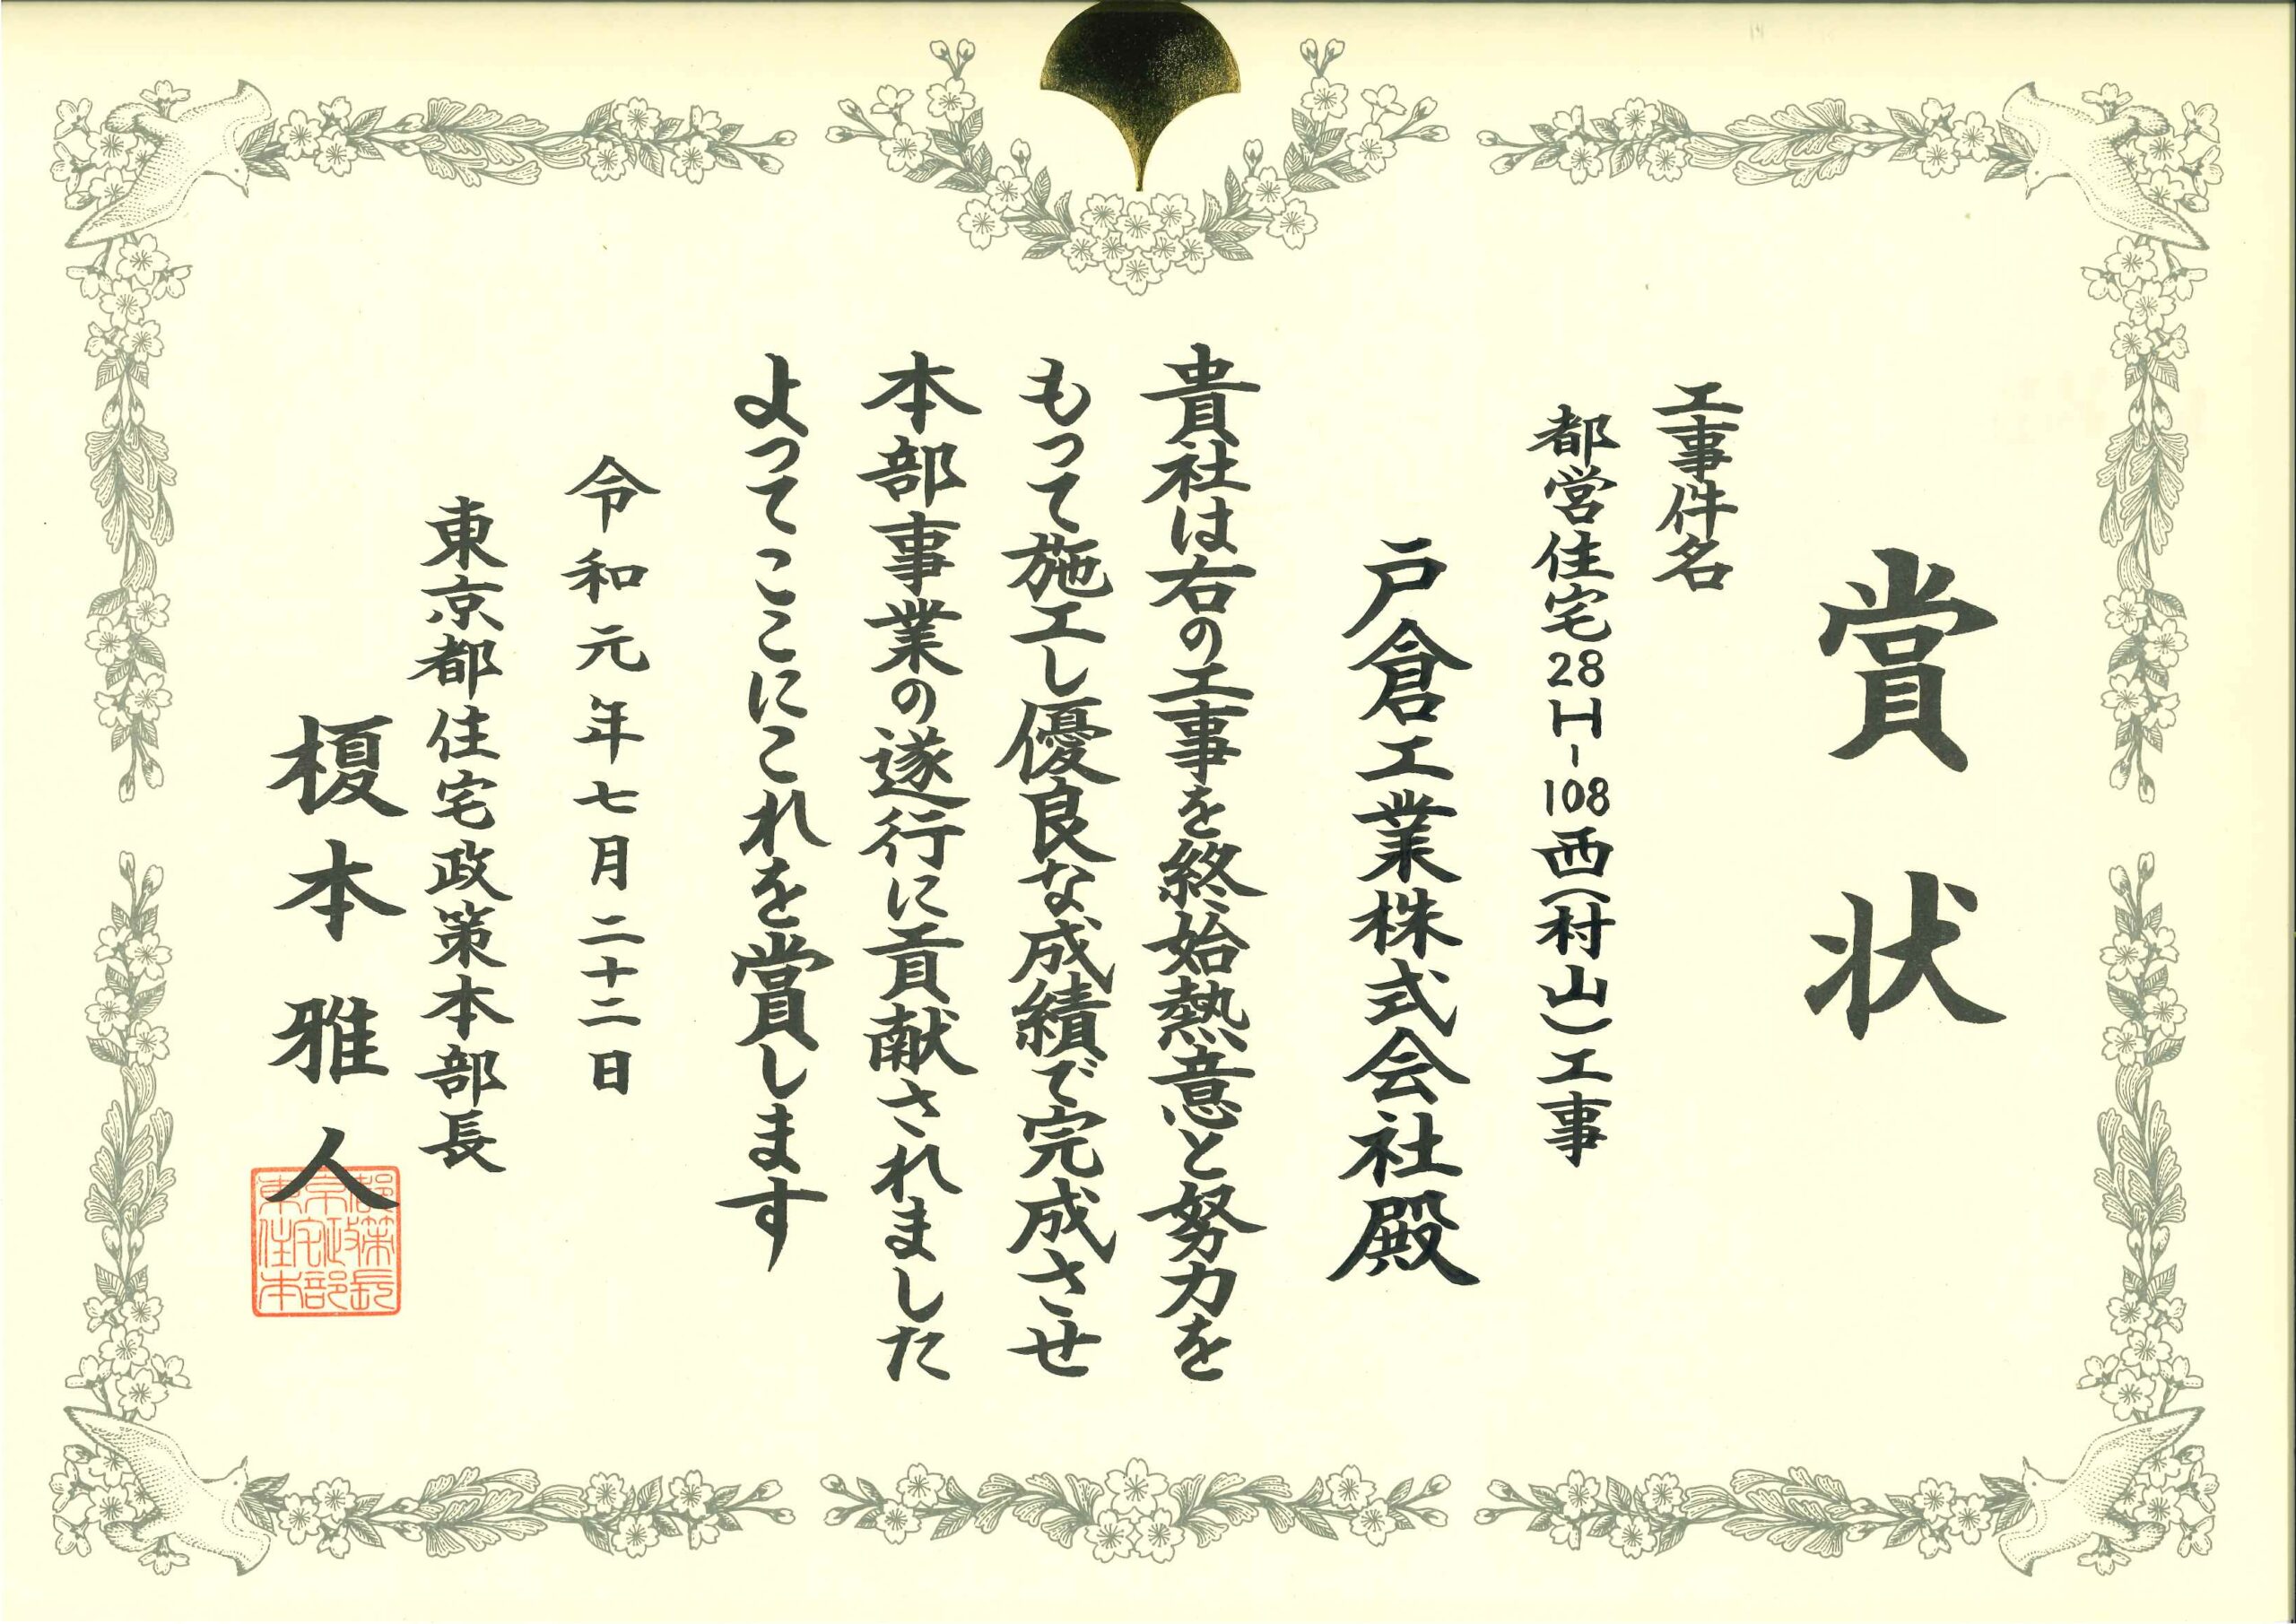 賞状
工事件名
都営住宅28H-108西(村山)工事
戸倉工業株式会社殿
貴社は右の工事を終始熱意と努力を
もって施工し優良な成績で完成させ
本部事業の遂行に貢献されました
よってここにこれを賞します
令和元年七月二十二日
東京都住宅政策本部長
榎本雅人
東京都
住宅政策
本部長